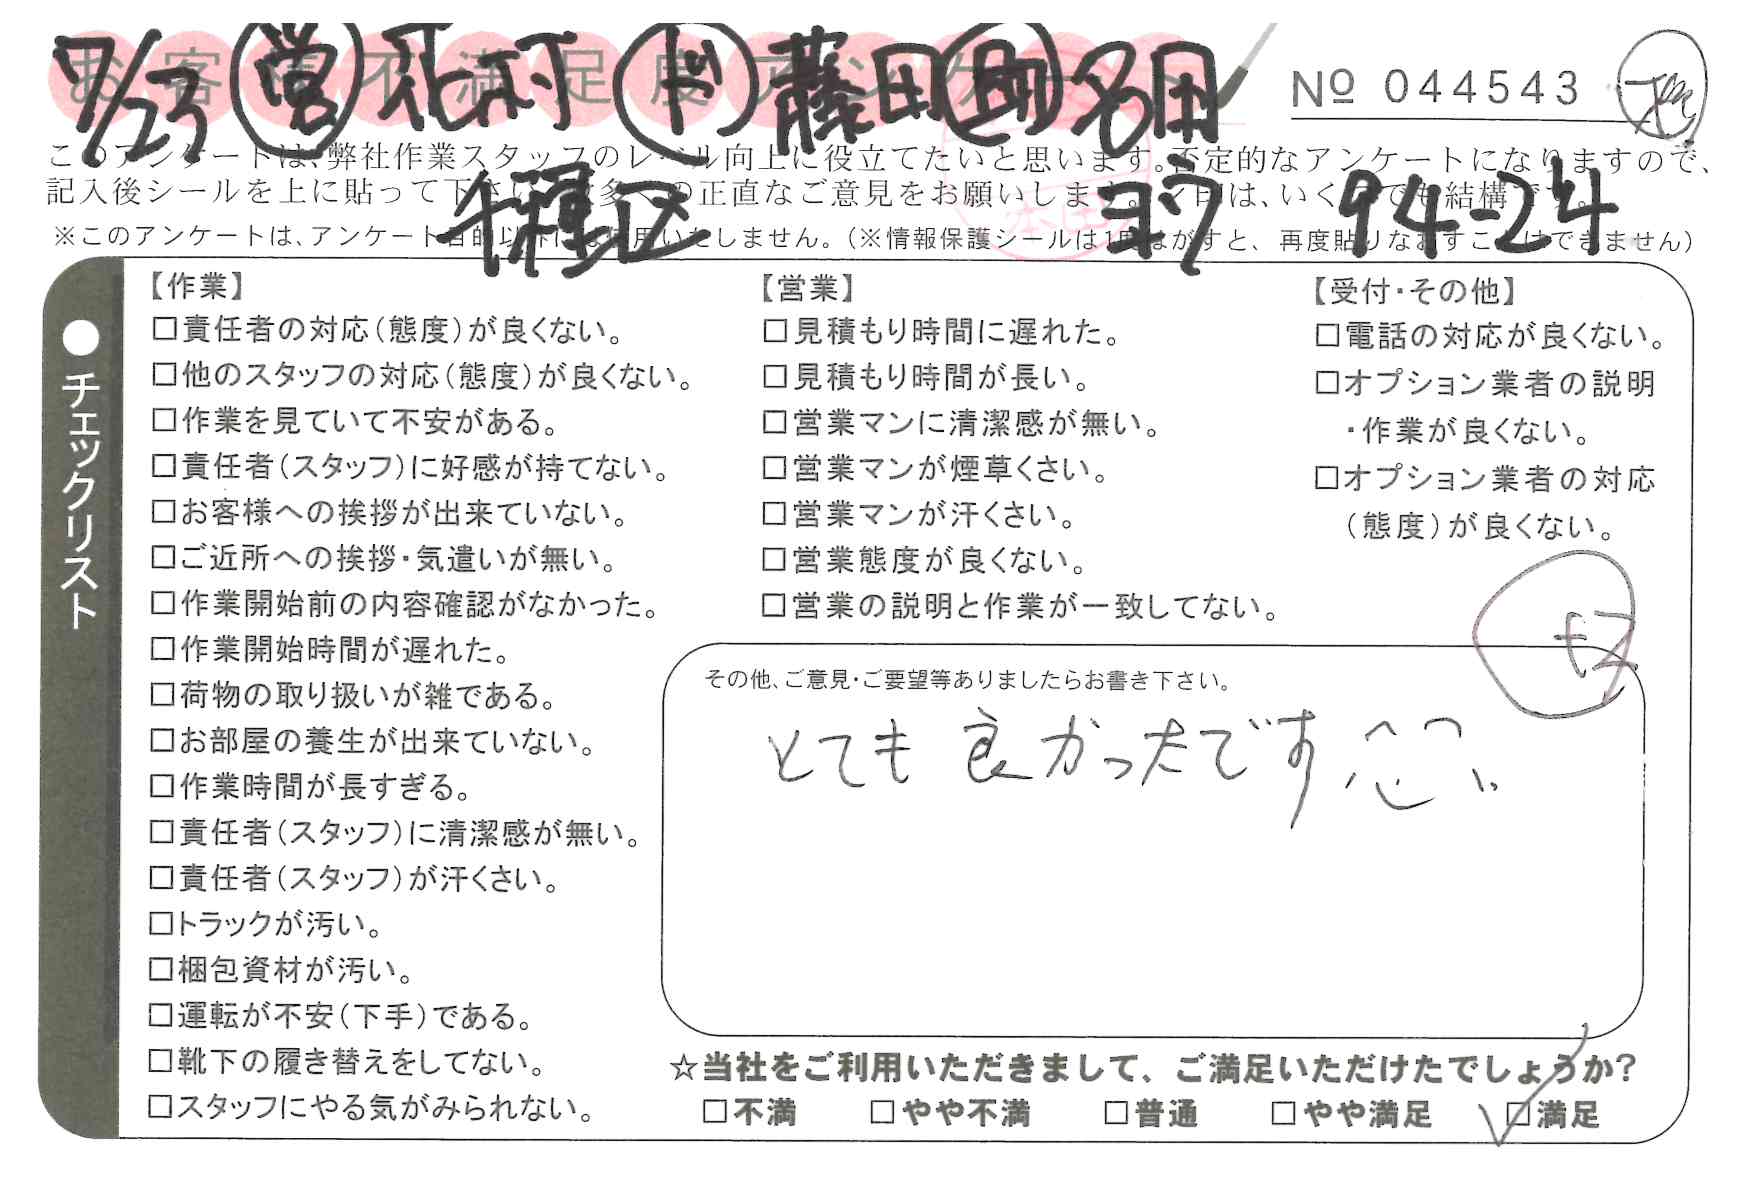 お客様不満足度アンケート
7/23 営 花村 ド 藤田 助 名田
No 044543
このアンケートは、弊社作業スタッフのレベル向上に役立てたいと思います。否定的なアンケートになりますので、
記入後シールを上に貼って下さい。 の正直なご意見をお願いします。 は、いくつでも結構です。
千種区 ヨク 94-24
※このアンケートは、アンケート目的以外には使用いたしません。(※情報保護シールは1度はがすと、再度貼りなおすことはできません)
本田
●チェックリスト
【作業】
□責任者の対応(態度)が良くない。
□他のスタッフの対応(態度)が良くない。
□作業を見ていて不安がある。
□責任者(スタッフ)に好感が持てない。
□お客様への挨拶が出来ていない。
□ご近所への挨拶・気遣いが無い。
□作業開始前の内容確認がなかった。
□作業開始時間が遅れた。
□荷物の取り扱いが雑である。
□お部屋の養生が出来ていない。
□作業時間が長すぎる。
□責任者(スタッフ)に清潔感が無い。
□責任者(スタッフ)が汗くさい。
□トラックが汚い。
□梱包資材が汚い。
□運転が不安(下手)である。
□靴下の履き替えをしてない。
□スタッフにやる気がみられない。
【営業】
□見積もり時間に遅れた。
□見積もり時間が長い。
□営業マンに清潔感が無い。
□営業マンが煙草くさい。
□営業マンが汗くさい。
□営業態度が良くない。
□営業の説明と作業が一致してない。
【受付・その他】
□電話の対応が良くない。
□オプション業者の説明
・作業が良くない。
□オプション業者の対応
(態度)が良くない。
その他、ご意見・ご要望等ありましたらお書き下さい。
とても良かったです
☆当社をご利用いただきまして、ご満足いただけたでしょうか?
□不満 □やや不満 □普通 □やや満足 □満足